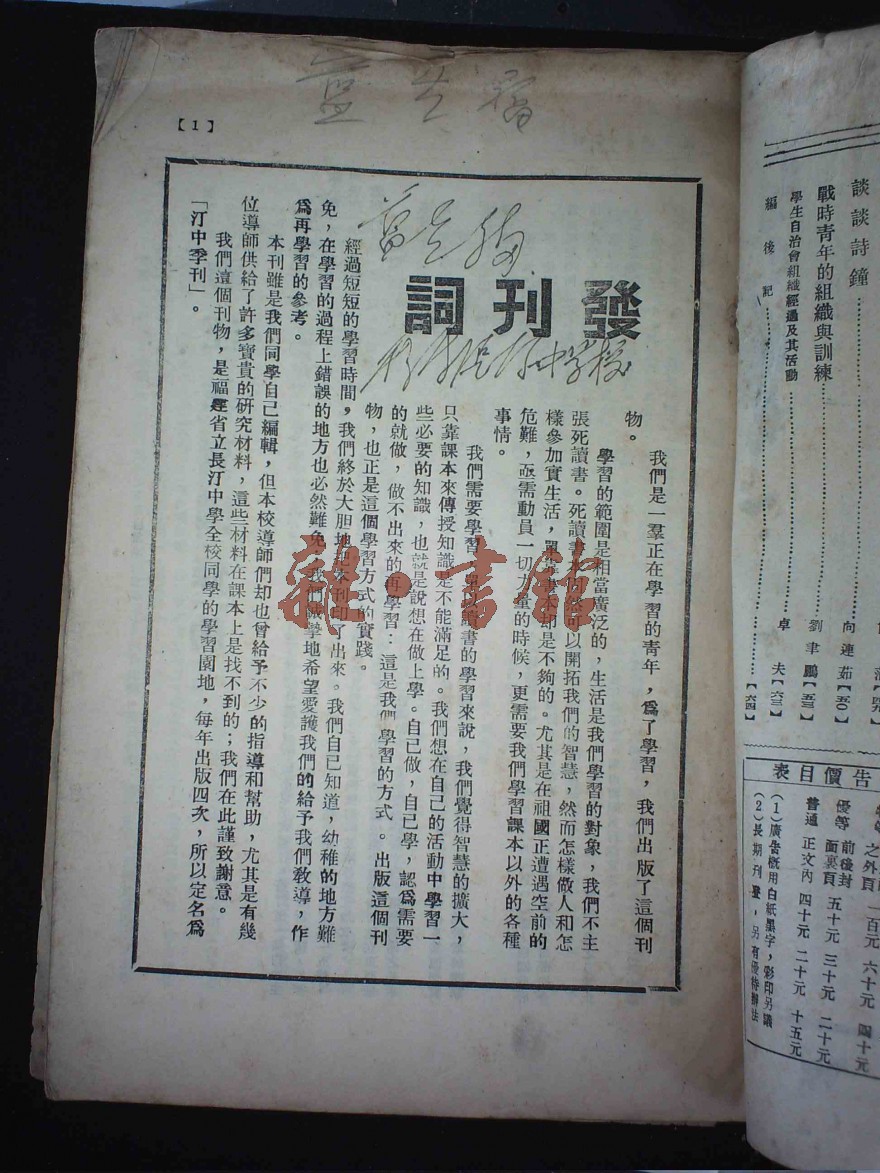 【1】
發刊詞
我們是一羣正在學習的青年，爲了學習，我們出版了這個刊
物。
學習的範圍是相當廣泛的，生活是我們學習的對象，我們不主
張死讀書。死讀書本固然可以開拓我們的智慧，然而怎樣做人和怎
樣參加實生活，單靠書本却是不夠的。尤其是在祖國正遭遇空前的
危難，亟需動員一切力量的時候，更需要我們學習課本以外的各種
事情。
我們需要學習，單以讀書的學習來說，我們覺得智慧的擴大，
只靠課本來傳授知識是不能滿足的。我們想在自己的活動中學習一
些必要的知識，也就是說想在做上學。自己做，自己學，認爲需要
的就做，做不出來的再學習：這是我們學習的方式。出版這個刊
物，也正是這個學習方式的實踐。
經過短短的學習時間，我們終於大胆地把本刊印了出來。我們自己知道，幼稚的地方難
免，在學習的過程上錯誤的地方也必然難免，我們誠摯地希望愛護我們的給予我們教導，作
爲再學習的參考。
本刊雖是我們同學自己編輯，但本校導師們却也曾給予不少的指導和幫助，尤其是有幾
位導師供給了許多寶貴的研究材料，這些材料在課本上是找不到的；我們在此謹致謝意。
我們這個刊物，是福建省立長汀中學全校同學的學習園地，每年出版四次，所以定名爲
「汀中季刊」。
談談詩鐘 向連茹【五〇】
戰時青年的組織與訓練 劉聿鵬【五三】
學生自治會組織經過及其活動 卓夫【六三】
編後記 【六四】
告價目表
之外頁 一百元 六十元 四十元
優等 前後封面裏頁 五十元 三十元 二十元
普通 正文內 四十元 二十元 十五元
（1）廣告概用白紙墨字，彩印另議
（2）長期刊登，另有優待辦法
龍·書館